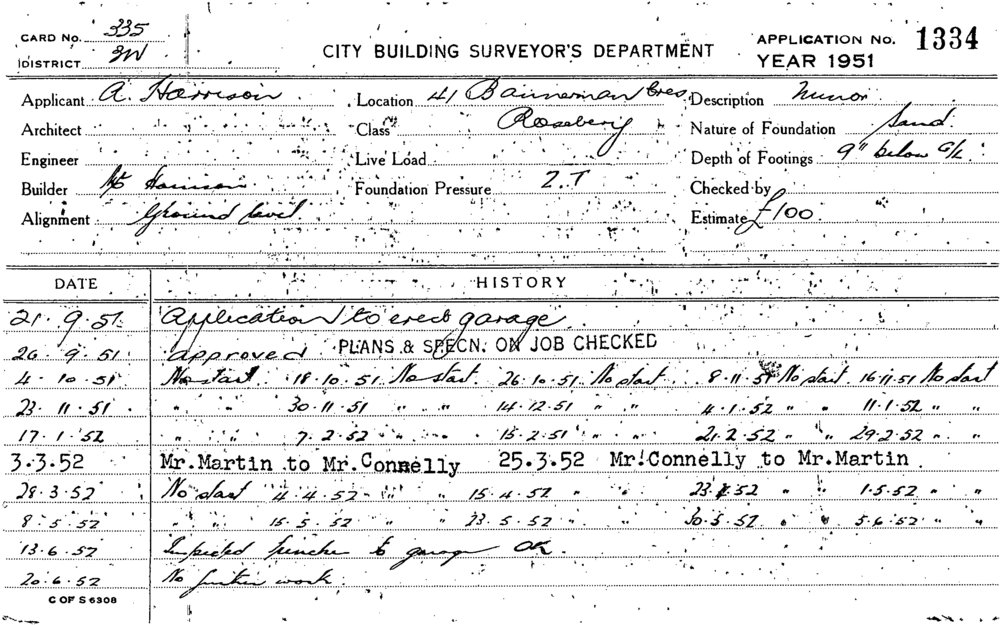 CARD NO. 335
CITY BUILDING SURVEYOR'S DEPARTMENT
APPLICATION NO. 1334
DISTRICT
YEAR 1951
Applicant A. Harrison Location 41 Bannerman Cres. Description Minor
Architect Class Rosebery Nature of Foundation Sand
Engineer Live Load Depth of Footings 9" below G/L
Builder Harrison Foundation Pressure 2.T Checked by
Alignment Ground level Estimate £100
DATE HISTORY
21.9.51 Application to erect garage
26.9.51 approved PLANS & SPECN. ON JOB CHECKED
4.10.51 No start 18.10.51 No start 26.10.51 No start 8.11.51 No start 16.11.51 No start
23.11.51 " " 30.11.51 " " 14.12.51 " " 4.1.52 " " 11.1.52 " "
17.1.52 " " 7.2.52 " " 15.2.51 " " 21.2.52 " " 29.2.52 " "
3.3.52 Mr.Martin to Mr.Connelly 25.3.52 Mr.Connelly to Mr.Martin
28.3.52 No start 4.4.52 " " 15.4.52 " " 23.4.52 " " 1.5.52 " "
8.5.52 " " 15.5.52 " " 23.5.52 " " 30.5.52 " " 5.6.52 " "
13.6.52 Inspected trenches to garage OK.
20.6.52 No further work.
C OF S 6308